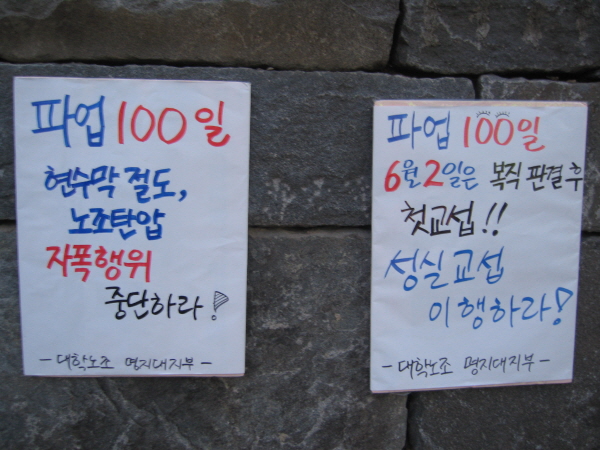 파업 100일
현수막 절도,
노조탄압
자폭행위
중단하라!
- 대학노조 명지대지부 -
파업 100일
6월 2일은 복직 판결 후
첫교섭!!
성실교섭
이행하라!
- 대학노조 명지대지부 -